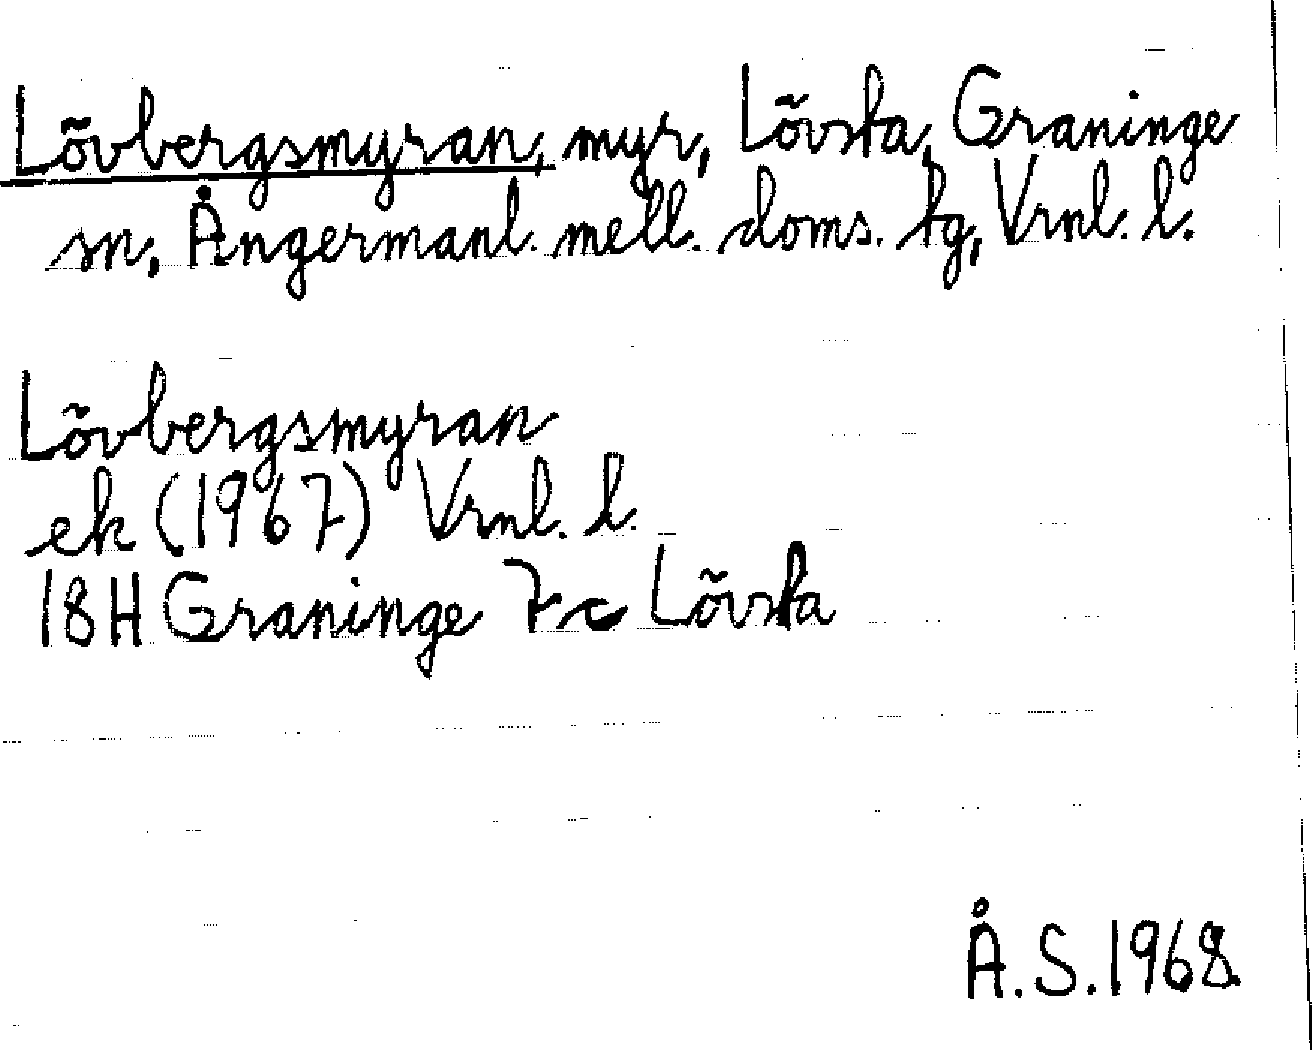 Lövbergsmyran, myr, Lövsta, Graninge
sn, Ångermanl. mell. doms. tg, Vrnl. l.
Lövbergsmyran
ek (1967) Vrnl. l.
18H Graninge 7c Lövsta
Å.S.1968.